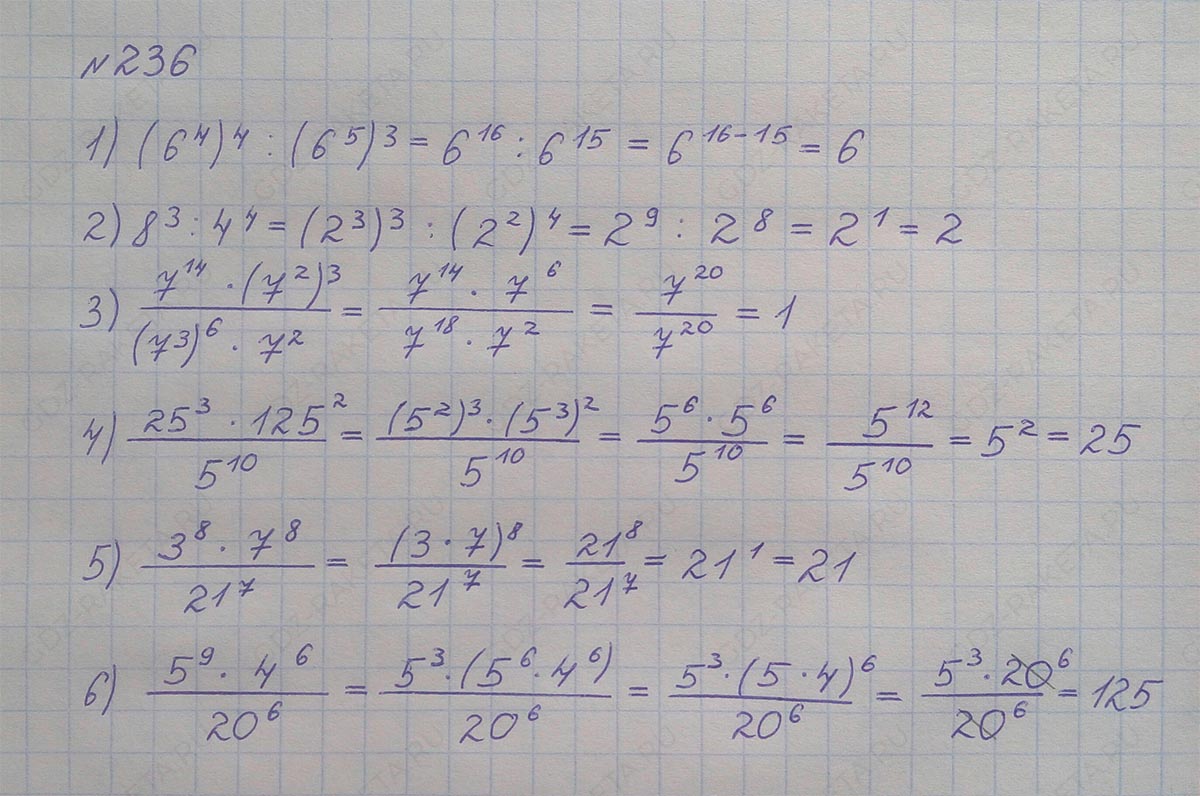 №236
1) (6⁴)⁴ : (6⁵)³ = 6¹⁶ : 6¹⁵ = 6¹⁶⁻¹⁵ = 6
2) 8³ : 4⁴ = (2³)³ : (2²)⁴ = 2⁹ : 2⁸ = 2¹ = 2
3) (7¹⁴ · (7²)³)/((7³)⁶ · 7²) = (7¹⁴ · 7⁶)/(7¹⁸ · 7²) = 7²⁰/7²⁰ = 1
4) (25³ · 125²)/5¹⁰ = ((5²)³ · (5³)²)/5¹⁰ = (5⁶ · 5⁶)/5¹⁰ = 5¹²/5¹⁰ = 5² = 25
5) (3⁸ · 7⁸)/21⁷ = (3 · 7)⁸/21⁷ = 21⁸/21⁷ = 21¹ = 21
6) (5⁹ · 4⁶)/20⁶ = (5³ · (5⁶ · 4⁶))/20⁶ = (5³ · (5 · 4)⁶)/20⁶ = (5³ · 20⁶)/20⁶ = 125
GDZ-RAKETA.RU